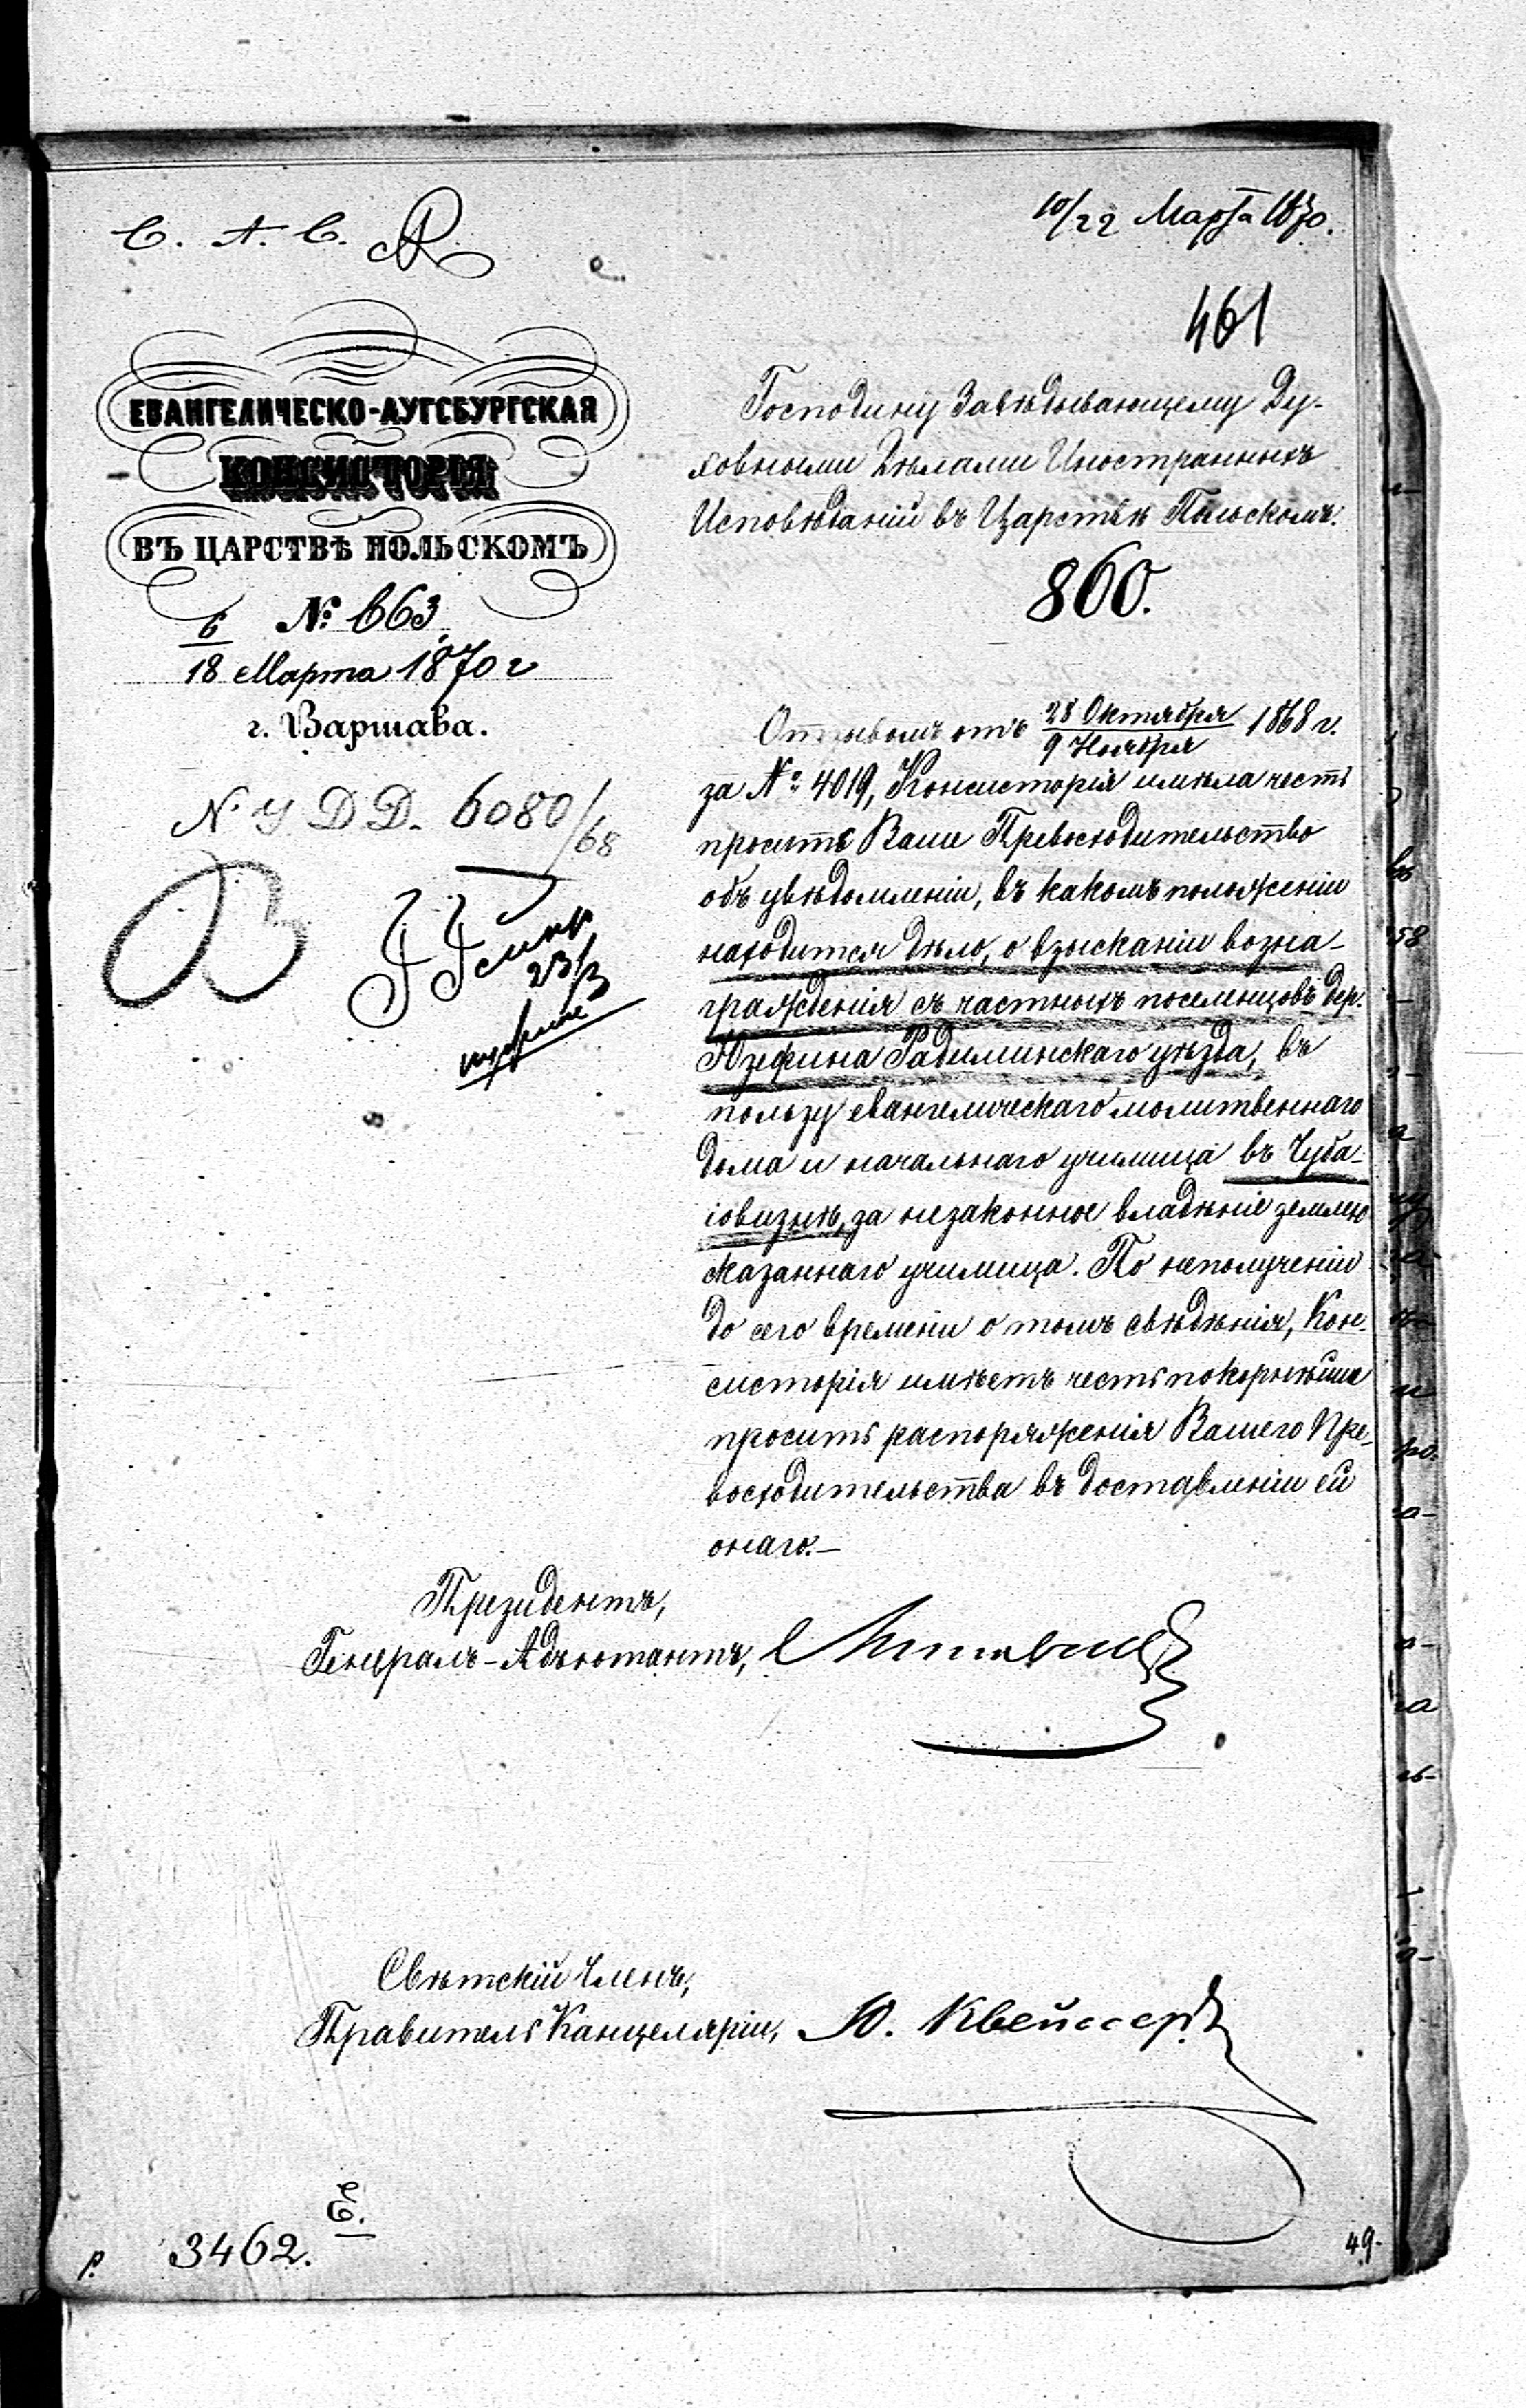 С. А. С.
10/22 Марта 1870.
461
ЕВАНГЕЛИЧЕСКО-АУГСБУРГСКАЯ
КОНСИСТОРІЯ
ВЪ ЦАРСТВѢ ПОЛЬСКОМЪ
№ 663
6
18 Марта 1870 г
г. Варшава.
N У Д Д. 6080/68
23/3
Господину Завѣдывающему Ду-
ховными Дѣлами Иностранныхъ
Исповѣданій въ Царствѣ Польскомъ.
860.
Отзывомъ отъ 28 Октября / 9 Ноября 1868 г.
за № 4019, Консисторія имѣла честь
просить Ваше Превосходительство
объ увѣдомленіи, въ какомъ положеніи
находится дѣло, о взысканіи возна-
гражденія съ частныхъ поселенцовъ дер.
Юзефина Радиминскаго уѣзда, въ
пользу евангелическаго молитвеннаго
дома и начальнаго училища въ Чуба-
іовизнѣ, за незаконное владѣніе землею
сказаннаго училища. По неполученіи
до сего времени о томъ свѣдѣнія, Кон-
систорія имѣетъ честь покорнѣйше
просить распоряженія Вашего Пре-
восходительства въ доставленіи ей
онаго.—
Президентъ,
Генералъ-Адъютантъ,
Свѣтскій Членъ,
Правитель Канцеляріи, Ю. Квейссеръ
Е.
3462.
49.